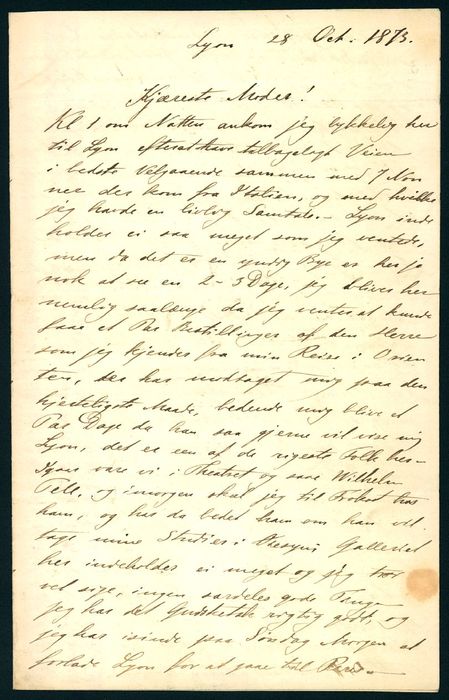 Lyon 28 Oct. 1873.
Kjæreste Moder!
Kl 1 om Natten ankom jeg lykkelig her
til Lyon efter at have tilbagelagt Veien
i bedste Velgaaende sammen med 7 Non
ner der kom fra Italien, og med hvilke
jeg havde en livlig Samtale. – Lyon inde
holder ei saa meget som jeg ventede,
men da det er en yndig Bye er her jo
nok at see en 2 – 3 Dage, jeg bliver her
nemlig saalænge da jeg venter at kunde
faae et Par Bestillinger af den Herre
som jeg kjender fra min Reise i Orien
ten, der har modtaget mig paa den
hjerteligste Maade, bedende mig blive et
Par Dage da han saa gjerne vil vise mig
Lyon, det er een af de rigeste Folk her –
Igaar vare vi i Theatret og saae Wilhelm
Tell, og imorgen skal jeg til Frokost hos
ham, og har da bedet ham om han vil
tage mine Studier i
Galleriet
her indeholder ei meget og jeg tør
vel sige, ingen særdeles gode Ting
jeg har det Gudskelov rigtig godt, og
jeg har isinde paa Søndag Morgen at
forlade Lyon for at gaae til Paris –